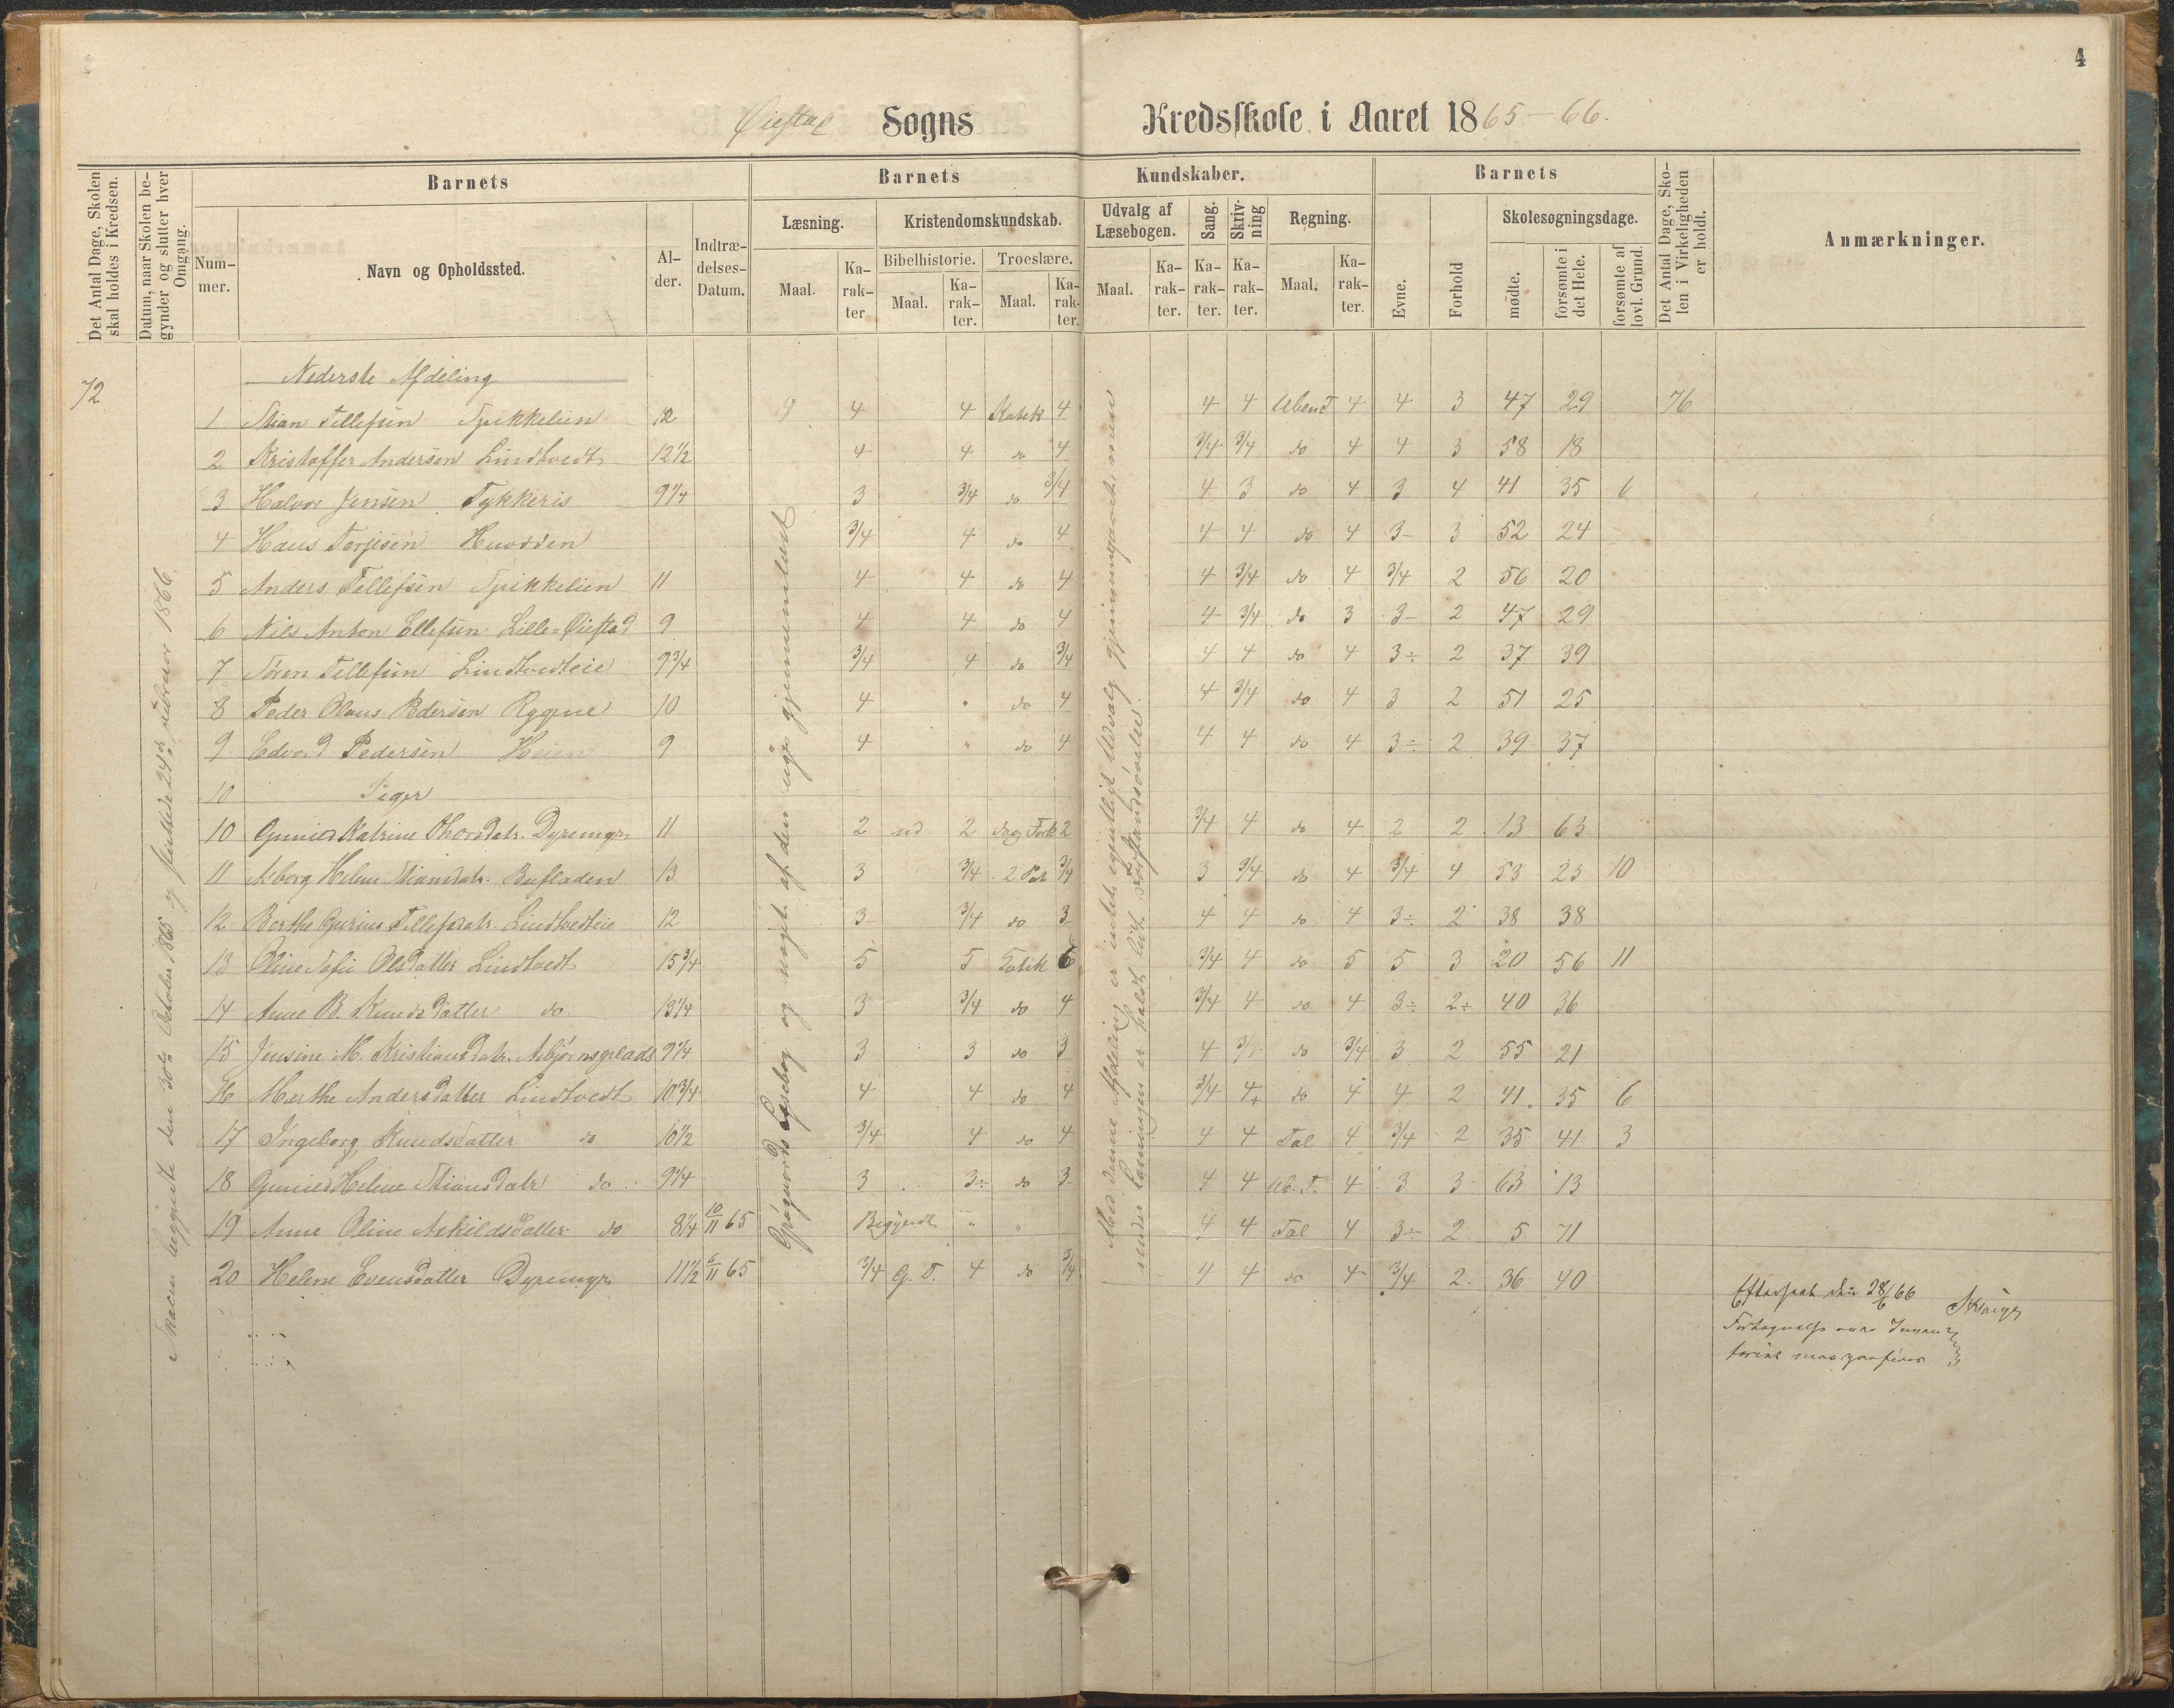 4
Øiestad Sogns Kredsskole i Aaret 1865-66.
Det Antal Dage, Skolen skal holdes i Kredsen.
Datum, naar Skolen begynder og slutter hver Omgang.
Barnets
Barnets Kundskaber.
Barnets
Det Antal Dage, Skolen i Virkeligheden er holdt.
Anmærkninger.
Nummer.
Navn og Opholdssted.
Alder.
Indtrædelses-Datum.
Læsning.
Kristendomskundskab.
Udvalg af Læsebogen.
Sang.
Skrivning
Regning.
Evne.
Forhold
Skolesøgningsdage.
Bibelhistorie.
Troeslære.
Maal. Karakter Maal. Karakter. Maal. Karakter. Maal. Karakter. Karakter. Karakter. Maal. Karakter.
mødte.
forsømte i det Hele.
forsømte af lovl. Grund.
72
Nederste Afdeling
1 Stian Tellefsen Spikkelien 12 4 4 Katek 4 4 4 Ubend T 4 4 3 47 29 76
2 Kristoffer Andersen Lindtvedt 12 1/2 4 4 do 4 3/4 3/4 do 4 4 3 58 18
3 Halvor Jensen Tykkeris 9 1/4 3 3/4 do 3/4 4 3 do 4 3 4 41 35 6
4 Hans Terjesen 3/4 4 do 4 4 4 do 4 3- 3 52 24
5 Anders Tellefsen Spikkelien 11 4 4 do 4 4 3/4 do 4 3/4 2 56 20
6 Nils Anton Ellefsen Lille-Øiestad 9 4 4 do 4 4 3/4 do 3 3- 2 47 29
7 Søren Tellefsen Lindtvedteie 9 3/4 3/4 4 do 3/4 4 4 do 4 3÷ 2 37 39
8 Peder Olaus Pedersen Rygene 10 4 " do 4 4 3/4 do 4 3 2 51 25
9 Edvard Pedersen Heien 9 4 " do 4 4 4 do 4 3÷ 2 39 37
10 Piger
10 Gunild Katrine Thorsdatr. Dyremyr 11 2 ud 2 do og Fork 2 3/4 4 do 4 2 2 13 63
11 Asborg Helene Stiansdatr. Bufladen 13 3 3/4 2 Par 3/4 3 3/4 do 4 3/4 4 53 23 10
12 Berthe Gurine Tellefsdatr. Lindtvedteie 12 3 3/4 do 3 4 4 do 4 3÷ 2 38 38
13 Oline Sofie Olsdatter Lindtvedt 15 3/4 5 5 Katek 5 3/4 4 do 5 5 3 20 56 11
14 Anne B. Knudsdatter do 13 1/4 3 3/4 do 4 3/4 4 do 4 3÷ 2÷ 40 36
15 Jensine M. Kristiansdatr. Asbjørnsplads 9 1/4 3 3 do 3 4 3/4 do 3/4 3 2 55 21
16 Marthe Andersdatter Lindtvedt 10 3/4 4 4 do 4 3/4 4+ do 4 4 2 41 35 6
17 Ingeborg Knudsdatter do 10 1/2 3/4 4 do 4 4 4 Tal 4 3/4 2 35 41 3
18 Gunild Helene Stiansdatr do 9 1/4 3 3÷ do 3 4 4 Ub. T. 4 3 3 63 13
19 Anne Oline Askildsdatter do 8 1/4 10/11 65 Begyndt " " 4 4 Tal 4 3÷ 2 5 71
20 Helene Evensdatter Dyremyr 11 1/2 6/11 65 3/4 G. T. 4 do 3/4 4 4 do 4 3/4 2 36 40
Skolen begyndte den 30te October 1865 og sluttede 24de Februar 1866.
Læsebog og noget af den gjennemlæst
Med denne Afdeling er intet egentligt Udvalg gjennemgaaet, men
under Læsningen er holdt lidt Forstandsøvelse.
Efterseet den 28/6 66